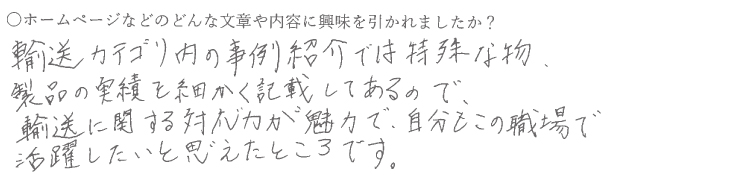 ○ホームページなどのどんな文章や内容に興味を引かれましたか？
輸送カテゴリ内の事例紹介では特殊な物、
製品の実績を細かく記載してあるので、
輸送に関する対応力が魅力で、自分もこの職場で
活躍したいと思えたところです。